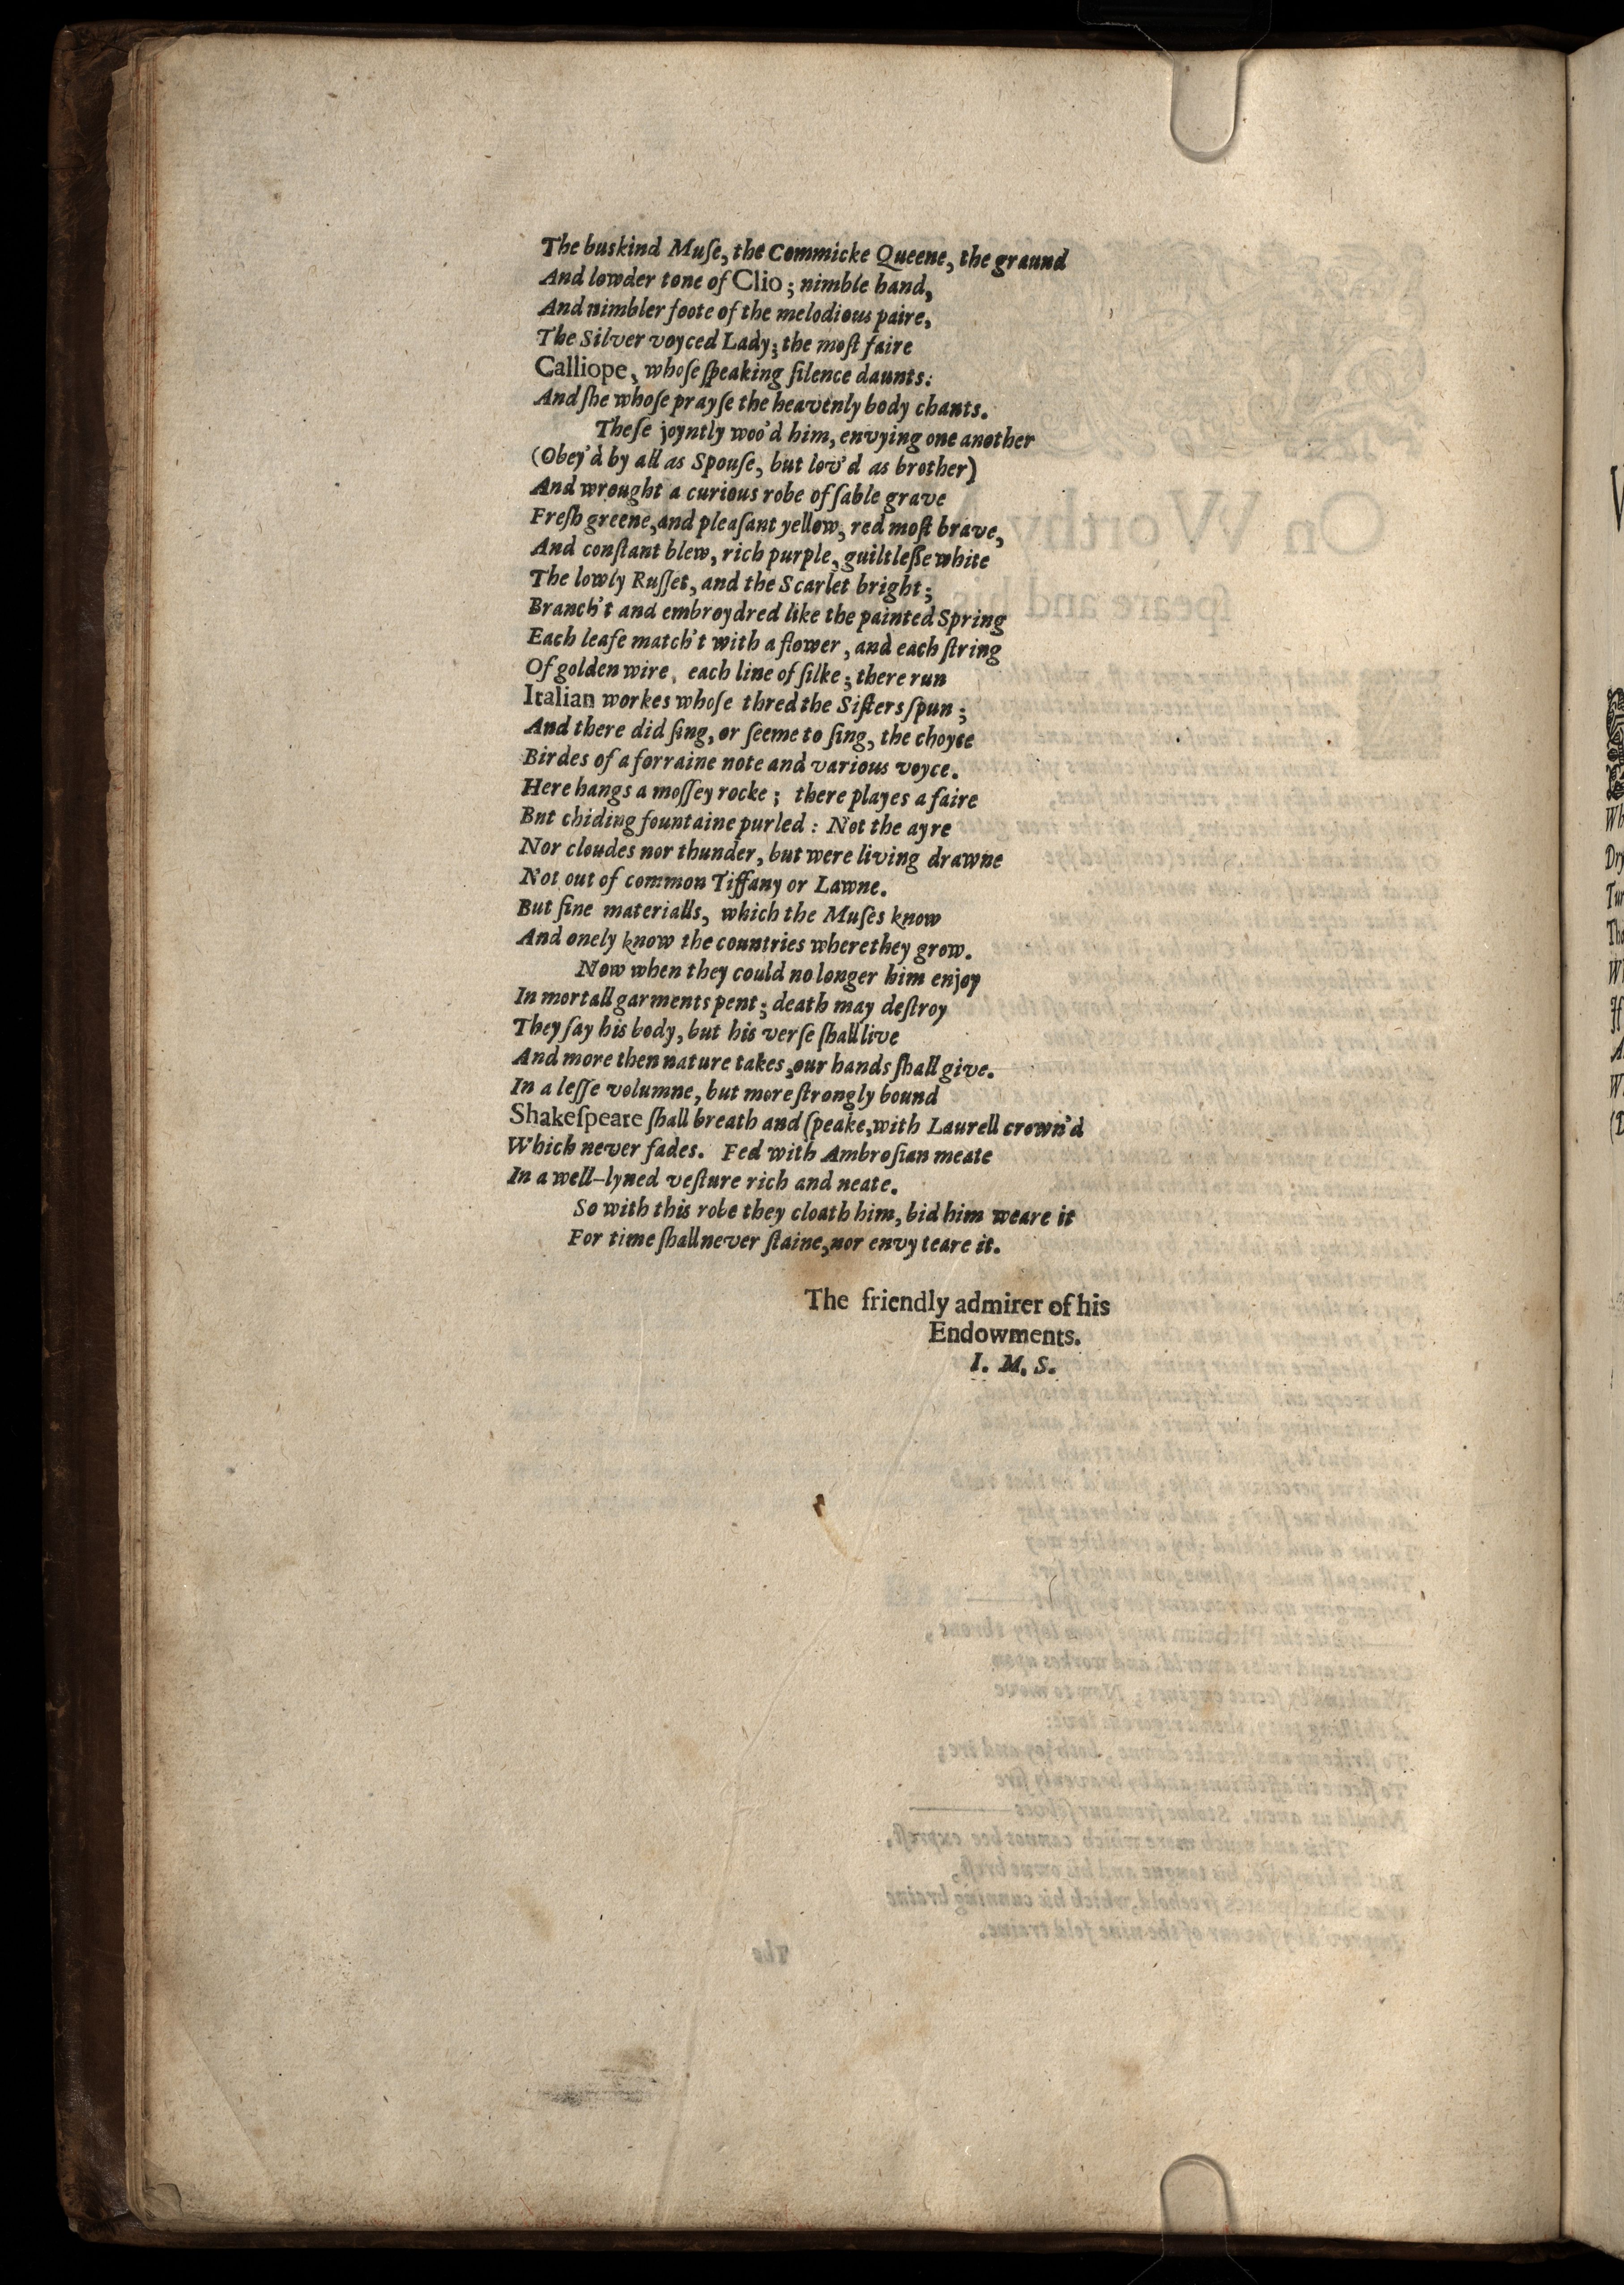 The buskind Muſe, the Commicke Queene, the graund
And lowder tone of Clio; nimble hand,
And nimbler foote of the melodious paire,
The Silver voyced Lady; the moſt faire
Calliope, whoſe ſpeaking ſilence daunts:
And ſhe whoſe prayſe the heavenly body chants.
Theſe joyntly woo'd him, envying one another
(Obey'd by all as Spouſe, but lov'd as brother)
And wrought a curious robe of ſable grave
Freſh greene, and pleaſant yellow, red moſt brave,
And conſtant blew, rich purple, guiltleſſe white
The lowly Ruſſet, and the Scarlet bright;
Branch't and embroydred like the painted Spring
Each leafe match't with a flower, and each ſtring
Of golden wire, each line of ſilke; there run
Italian workes whoſe thred the Siſters ſpun;
And there did ſing, or ſeeme to ſing, the choyce
Birdes of a forraine note and various voyce.
Here hangs a moſſey rocke; there playes a faire
But chiding fountaine purled: Not the ayre
Nor cloudes nor thunder, but were living drawne
Not out of common Tiffany or Lawne.
But fine materialls, which the Muſes know
And onely know the countries where they grow.
Now when they could no longer him enjoy
In mortall garments pent; death may deſtroy
They ſay his body, but his verſe ſhall live
And more then nature takes, our hands ſhall give.
In a leſſe volumne, but more ſtrongly bound
Shakeſpeare ſhall breath and ſpeake, with Laurell crown'd
Which never fades. Fed with Ambroſian meate
In a well-lyned veſture rich and neate.
So with this robe they cloath him, bid him weare it
For time ſhall never ſtaine, nor envy teare it.
The friendly admirer of his
Endowments.
I. M. S.